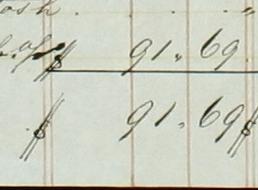 osh . . "
$ 91.69
$ 91.69 $